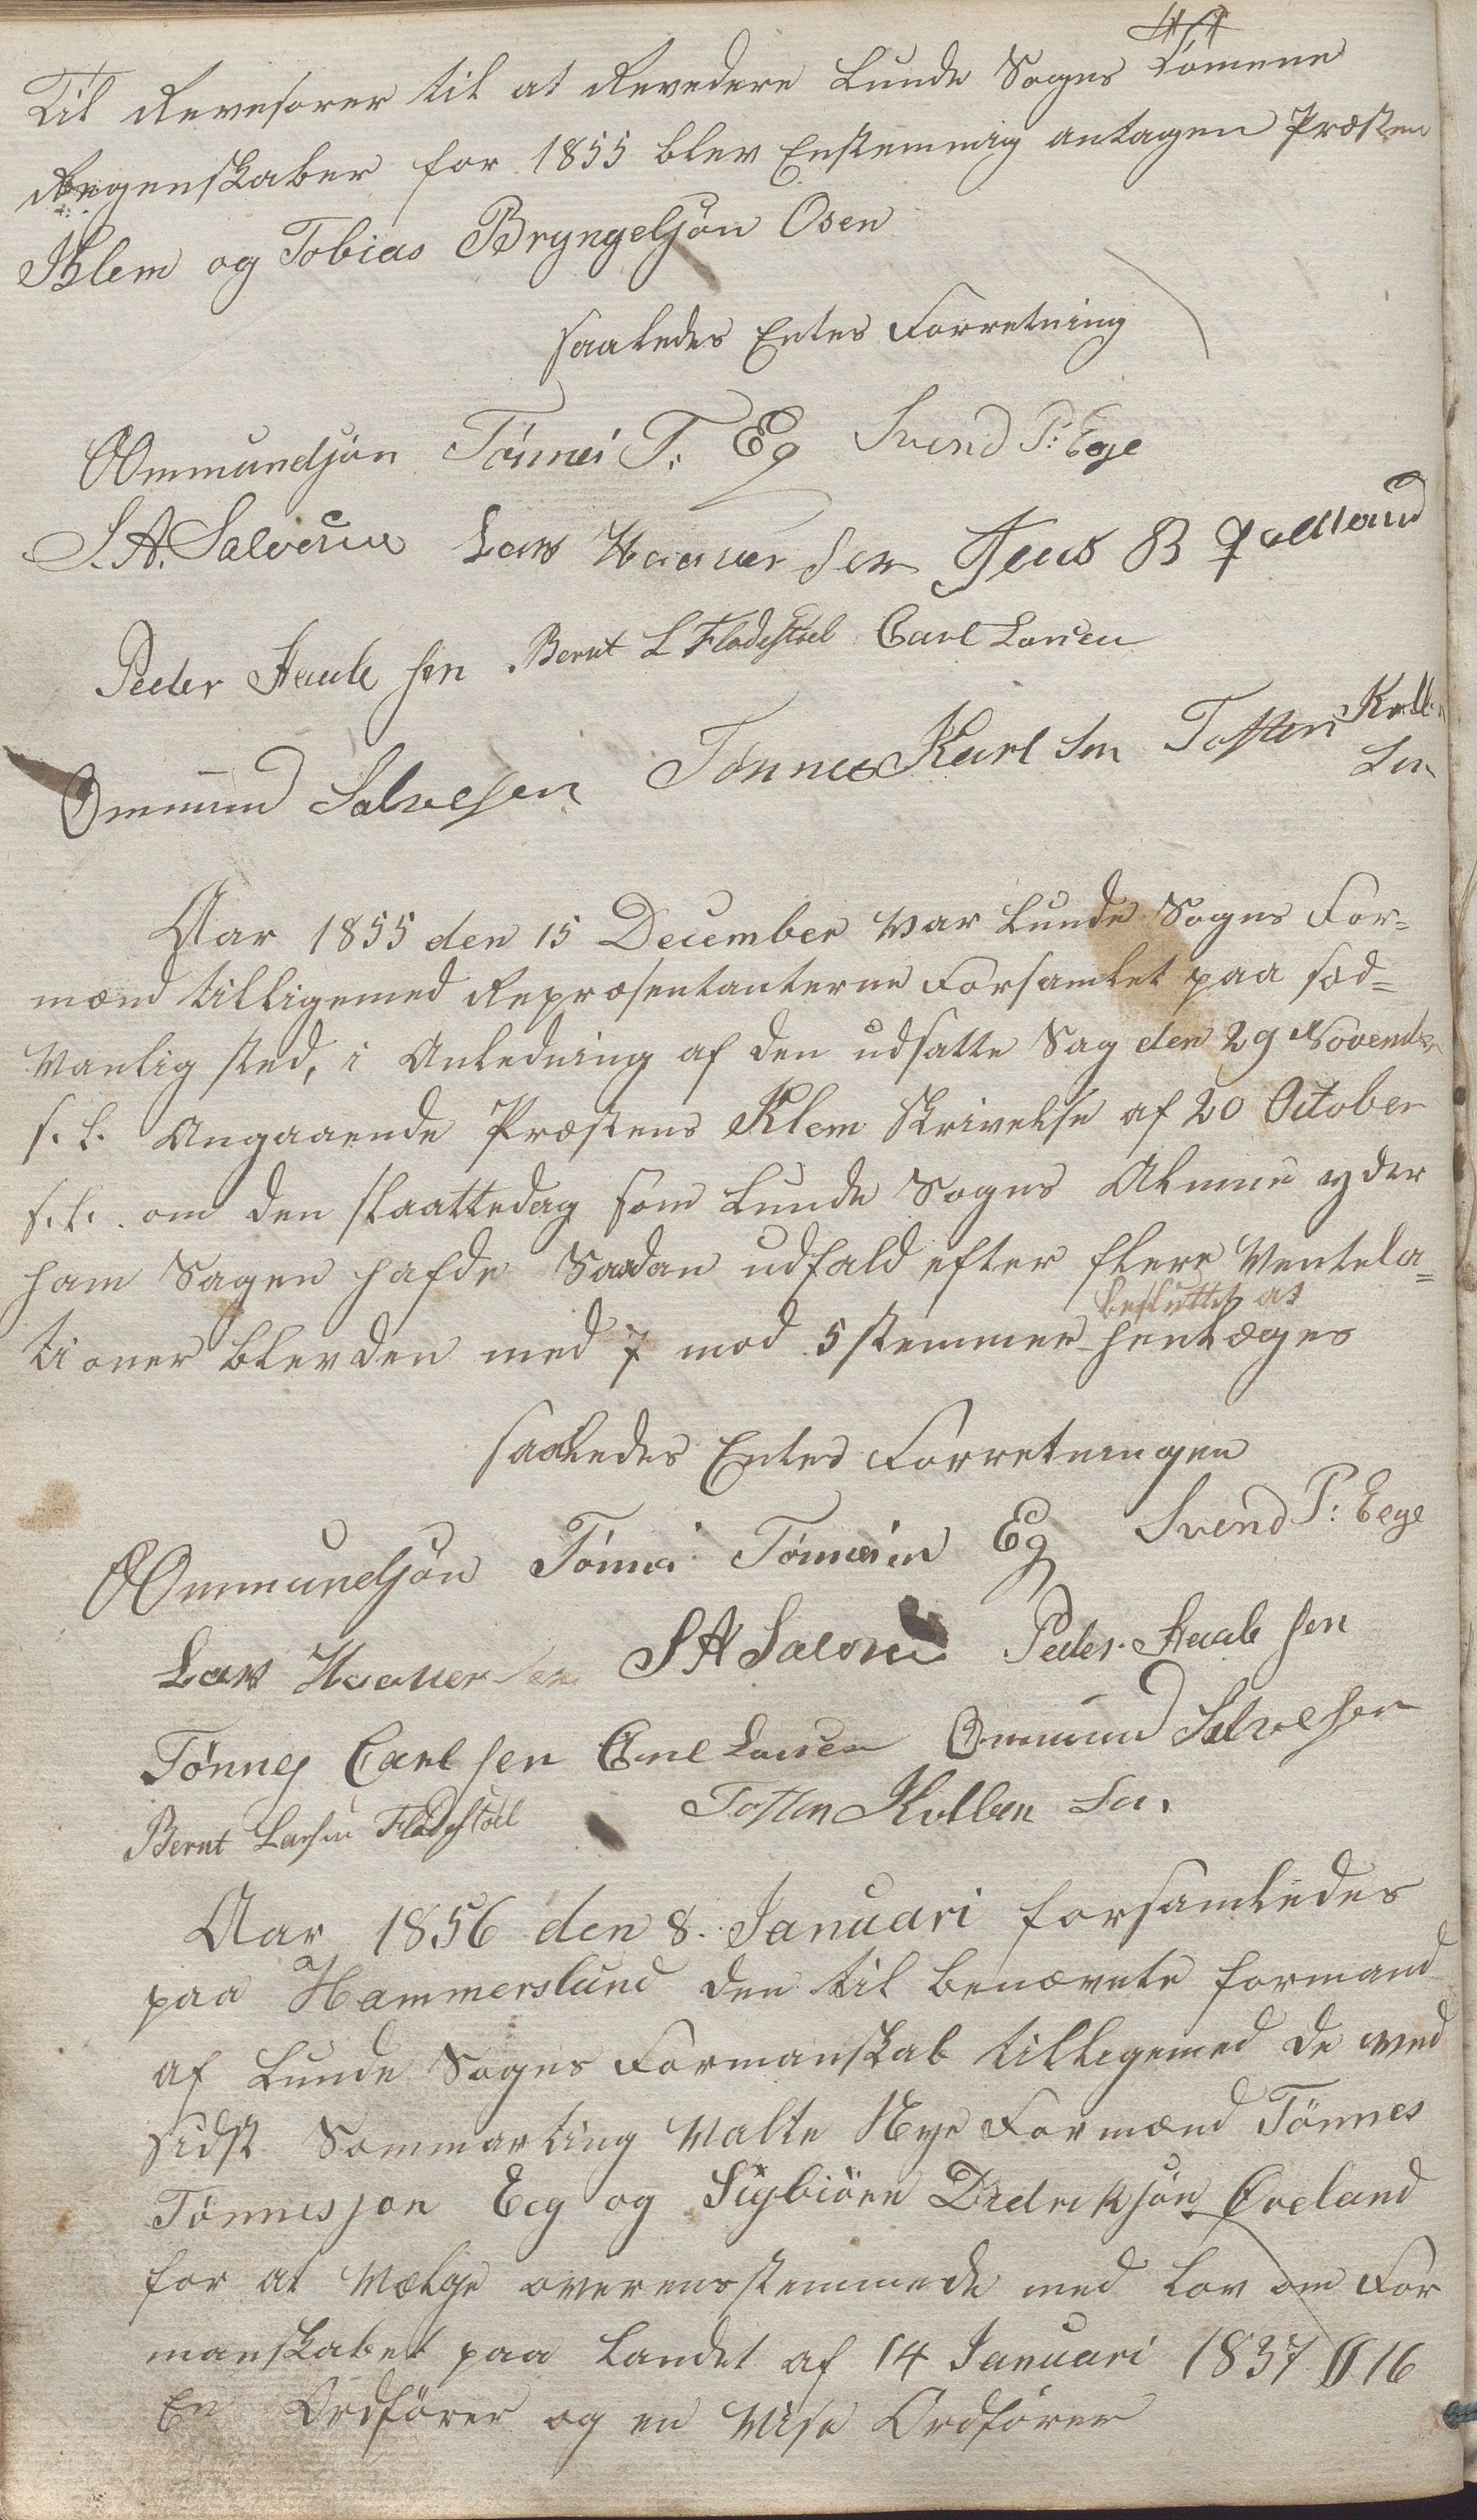 Til Revesorer til at Revedere Lunde Sogns
Regenskaber for 1855 blev Enstemmig antagen Præsten
Klem og Tobias Bryngeljön Osen
saaledes Entes Forretning
OOmmundsön Tönnes T: Eg Svend P: Eege
S. A. Salvesen Lars Haaversen Jens B
Peder Aaalesen Bernt L Fladestöl Carl Larsen
Ommund Salvesen Tönnes Karlsen Tosten Kolbensen
Aar 1855 den 15 December var Lunde Sogns For=
mænd tilligemed Repræsentanterne Forsamlet paa sæd=
vanlig sted, i Anledning af den udsatte Sag den 29 November
s. l. Angaaende Præstens Klem Skrivelse af 20 October
s. l. om den slaattedag som Lunde Sogns Almue yder
ham Sagen hafde Saadan udfald efter flere Ventela=
besluttet at
tioner blev den med 7 mod 5 stemmer henlæges
saaledes Entes Forretningen
OOmmundsön Tönnes Tönnesen Eg Svend P: Eege
Lars Haaversen S A Salvesen Peder Aaalesen
Tönnes Carlsen Carl Larsen Ommund Salvesen
Bernt Larsen Fladestöl Tosten Kolbensen.
Aar 1856 den 8. Januari forsamledes
paa Hammerslund den til benævnte formand
af Lunde Sogns Formanskab tilligemed de ved
sidst Sommarting Valte Nye Formænd Tönnes
Tönnesson Eeg og Sigbiörn Didrikjön Öveland
for at Vælge overensstemmede med Lov om For
manskabet paa Landet af 14 Januari 1837 § 16
En Ordförer og en Vise Ordförer